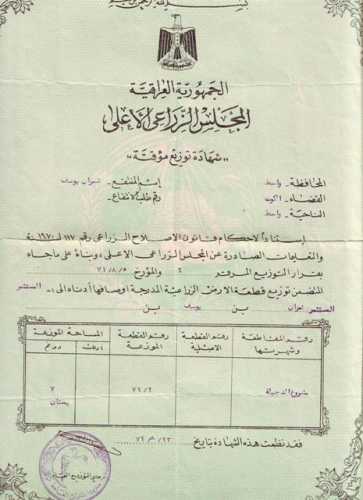 بسم الله الرحمن الرحيم
الجمهورية العراقية
المجلس الزراعي الاعلى
«شهادة توزيع مؤقتة»
المحافظة واسط
اسم المنتفع يوسف
القضاء الكوت
رقم طلب الانتفاع
الناحية واسط
استناداً لاحكام قانون الاصلاح الزراعي رقم ١١٧ لـ ١٩٧٠
والتعليمات الصادرة عن المجلس الزراعي الاعلى وبناء على ماجاء
بقرار التوزيع المرقم ٤ والمؤرخ ٧١/٨/٥
المتضمن توزيع قطعة الارض الزراعية المدرجة اوصافها أدناه الى:- المستثمر
المستثمر بن يوسف بن
رقم المقاطعة وشهرتها
رقم القطعة الاصلية
رقم القطعة الموزعة
المساحة الموزعة
دونم
مشروع الدجيلة
٧٦/٢
٧
بستان
فقد نظمت هذه الشهادة بتاريخ